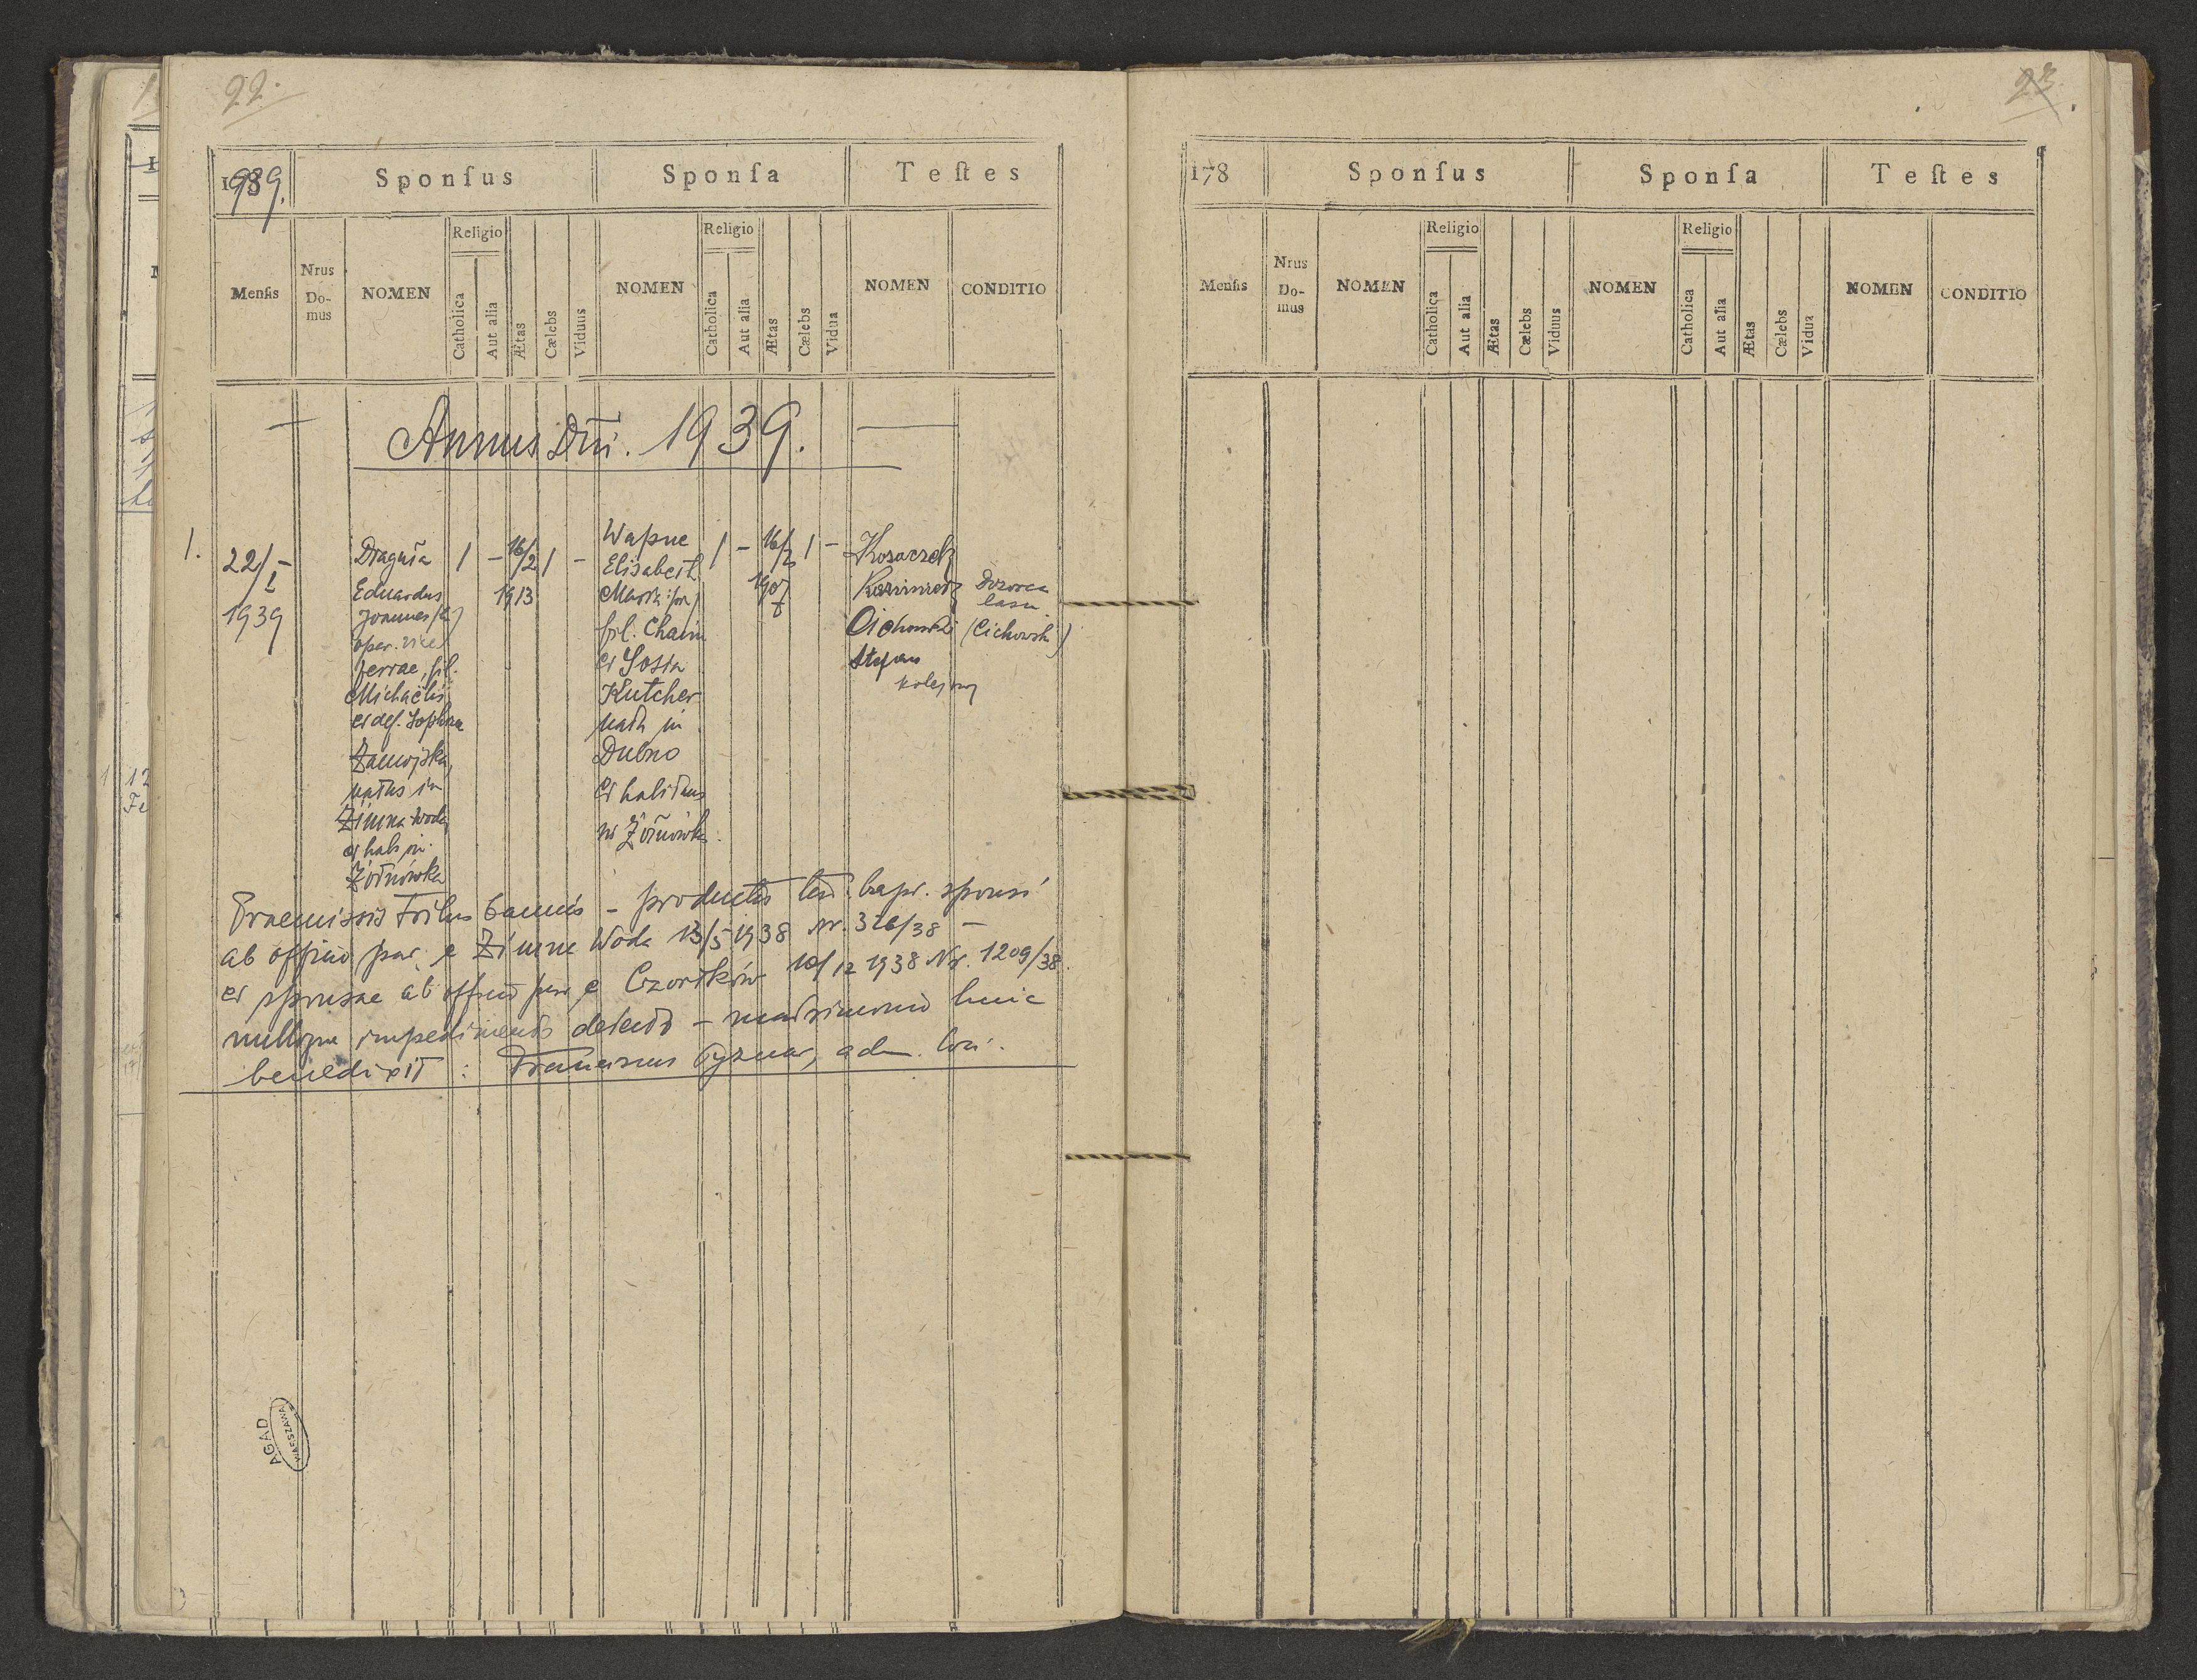 22.
1939.
Sponſus
Sponſa
Teſtes
Menſis
Nrus Domus
NOMEN
Religio
Catholica
Aut alia
Ætas
Cælebs
Viduus
NOMEN
Religio
Catholica
Aut alia
Ætas
Cælebs
Vidua
NOMEN
CONDITIO
Annus Dni. 1939.
1.
22/I
1939
Draguła
Eduardus
Joannes
oper.
terrae, fil.
Michaelis
et def. Sophia
Zamojska,
natus in
Zimna Woda
et hab. in
Żółnówka
1 – 16/2 1 –
1913
Wapne
Elisabeth
Maria
fil. Chaim
et Sosia
Kutcher
nata in
Dubno
et habitans
in Żółnówka.
1 – 16/2 1 –
1907
Kozaczek
Kazimierz
Dozorca
lasu
Cichowski (Cichowski)
Stefan
kolejowy
Praemissis tribus bannis – productis test. bapt. sponsi
ab officio par. e Zimna Woda 13/5 1938 Nr. 326/38 –
et sponsae ab officio par. e Czortków 10/12 1938 Nr. 1209/38.
nulloque impedimento detecto – matrimonio huic
benedixit : Franciscus adm. loci.
AGAD
WARSZAWA
23
178
Sponſus
Sponſa
Teſtes
Menſis
Nrus Domus
NOMEN
Religio
Catholica
Aut alia
Ætas
Cælebs
Viduus
NOMEN
Religio
Catholica
Aut alia
Ætas
Cælebs
Vidua
NOMEN
CONDITIO